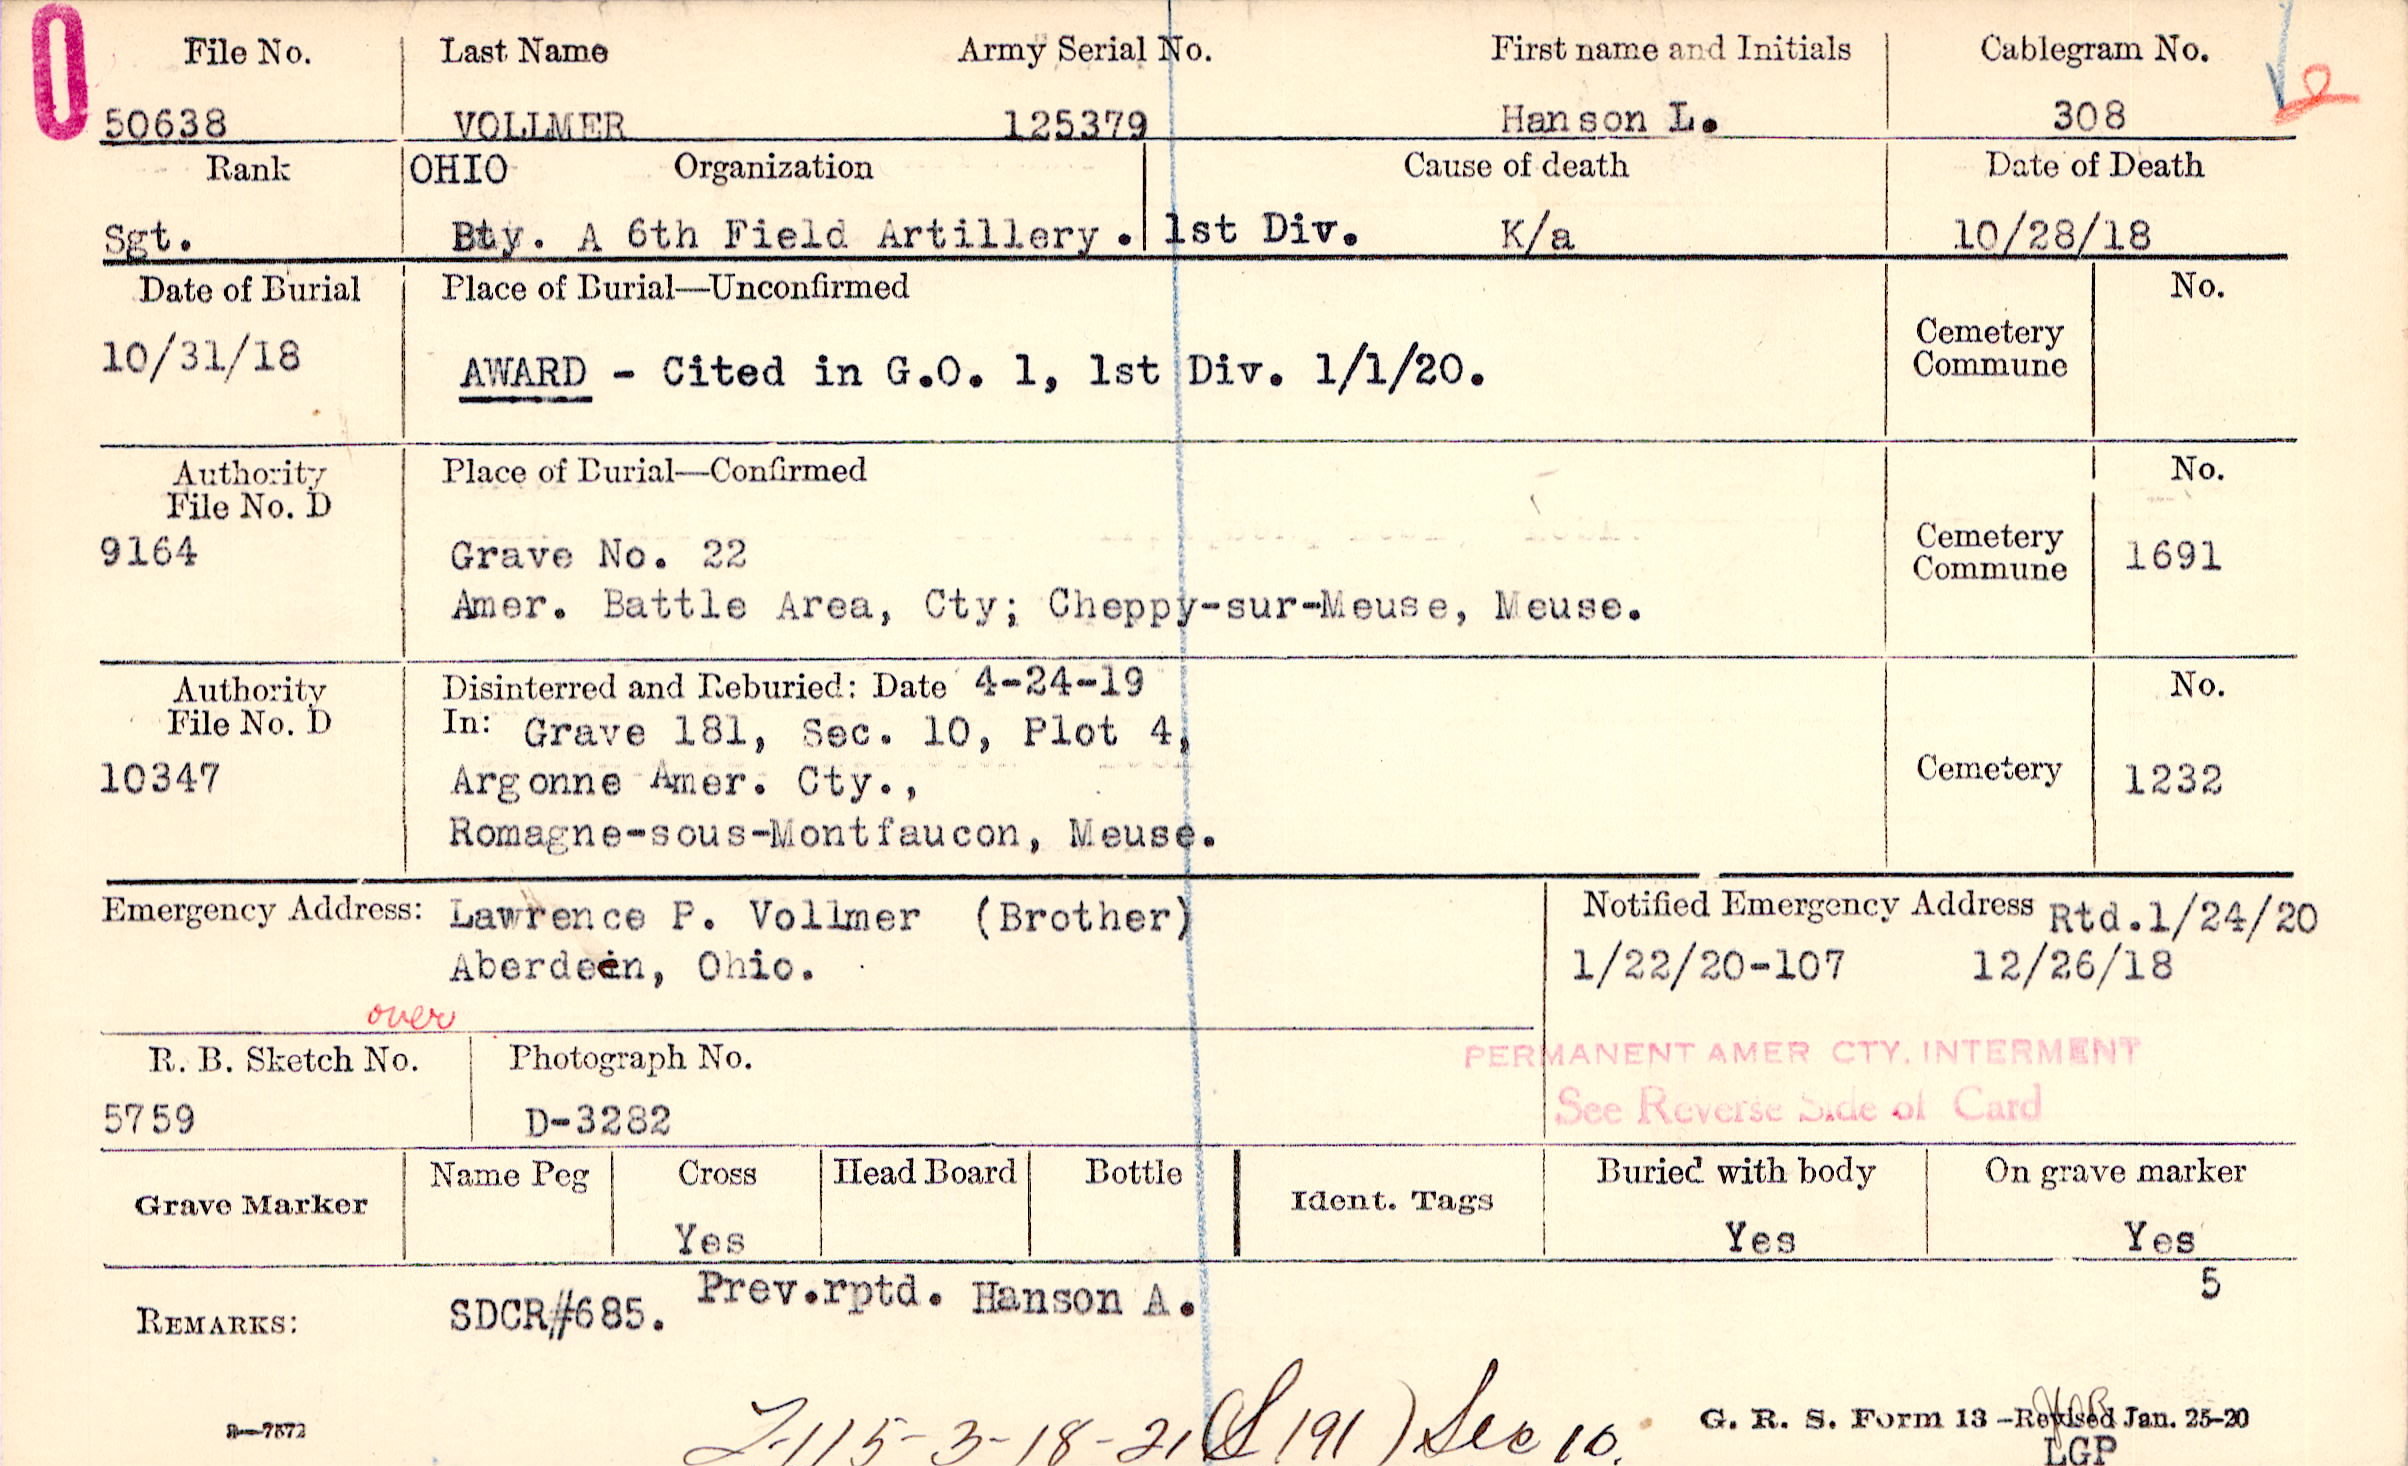 File No. Last Name Army Serial No. First name and Initials Cablegram No.
50638 VOLLMER 125379 Hanson L. 308
Rank OHIO Organization Cause of death Date of Death
Sgt. Bty. A 6th Field Artillery. 1st Div. K/a 10/28/18
Date of Burial Place of Burial—Unconfirmed No.
Cemetery
Commune
10/31/18
AWARD - Cited in G.O. 1, 1st Div. 1/1/20.
Authority Place of Burial—Confirmed No.
File No. D
9164 Grave No. 22
Cemetery
Commune 1691
Amer. Battle Area, Cty; Cheppy-sur-Meuse, Meuse.
Authority Disinterred and Reburied: Date 4-24-19 No.
File No. D In: Grave 181, Sec. 10, Plot 4,
10347 Argonne Amer. Cty., Cemetery 1232
Romagne-sous-Montfaucon, Meuse.
Emergency Address: Lawrence P. Vollmer (Brother) Notified Emergency Address Rtd.1/24/20
Aberdeen, Ohio. 1/22/20-107 12/26/18
over
R. B. Sketch No. Photograph No. PERMANENT AMER CTY. INTERMENT
5759 D-3282 See Reverse Side of Card
Grave Marker Name Peg Cross Head Board Bottle Ident. Tags Buried with body On grave marker
Yes Yes Yes
5
REMARKS: SDCR#685. Prev.rptd. Hanson A.
3—7572 G. R. S. Form 13—Revised Jan. 25-20
115-3-18-21 (S 191) Sec 10.
LGP